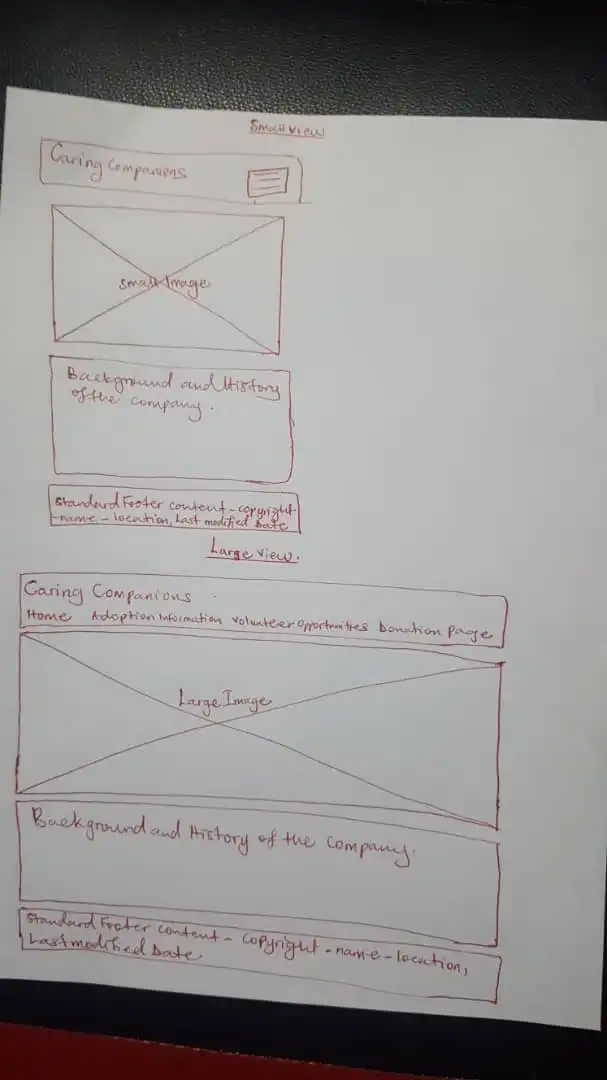 Small view
Caring Companions
small Image
Background and History
of the company.
Standard Footer content - copyright-
-name - location, Last modified Date
Large view.
Caring Companions
Home Adoption Information Volunteer opportunities Donation Page
Large Image
Background and History of the company.
Standard Footer content - copyright - name - location,
Last modified Date